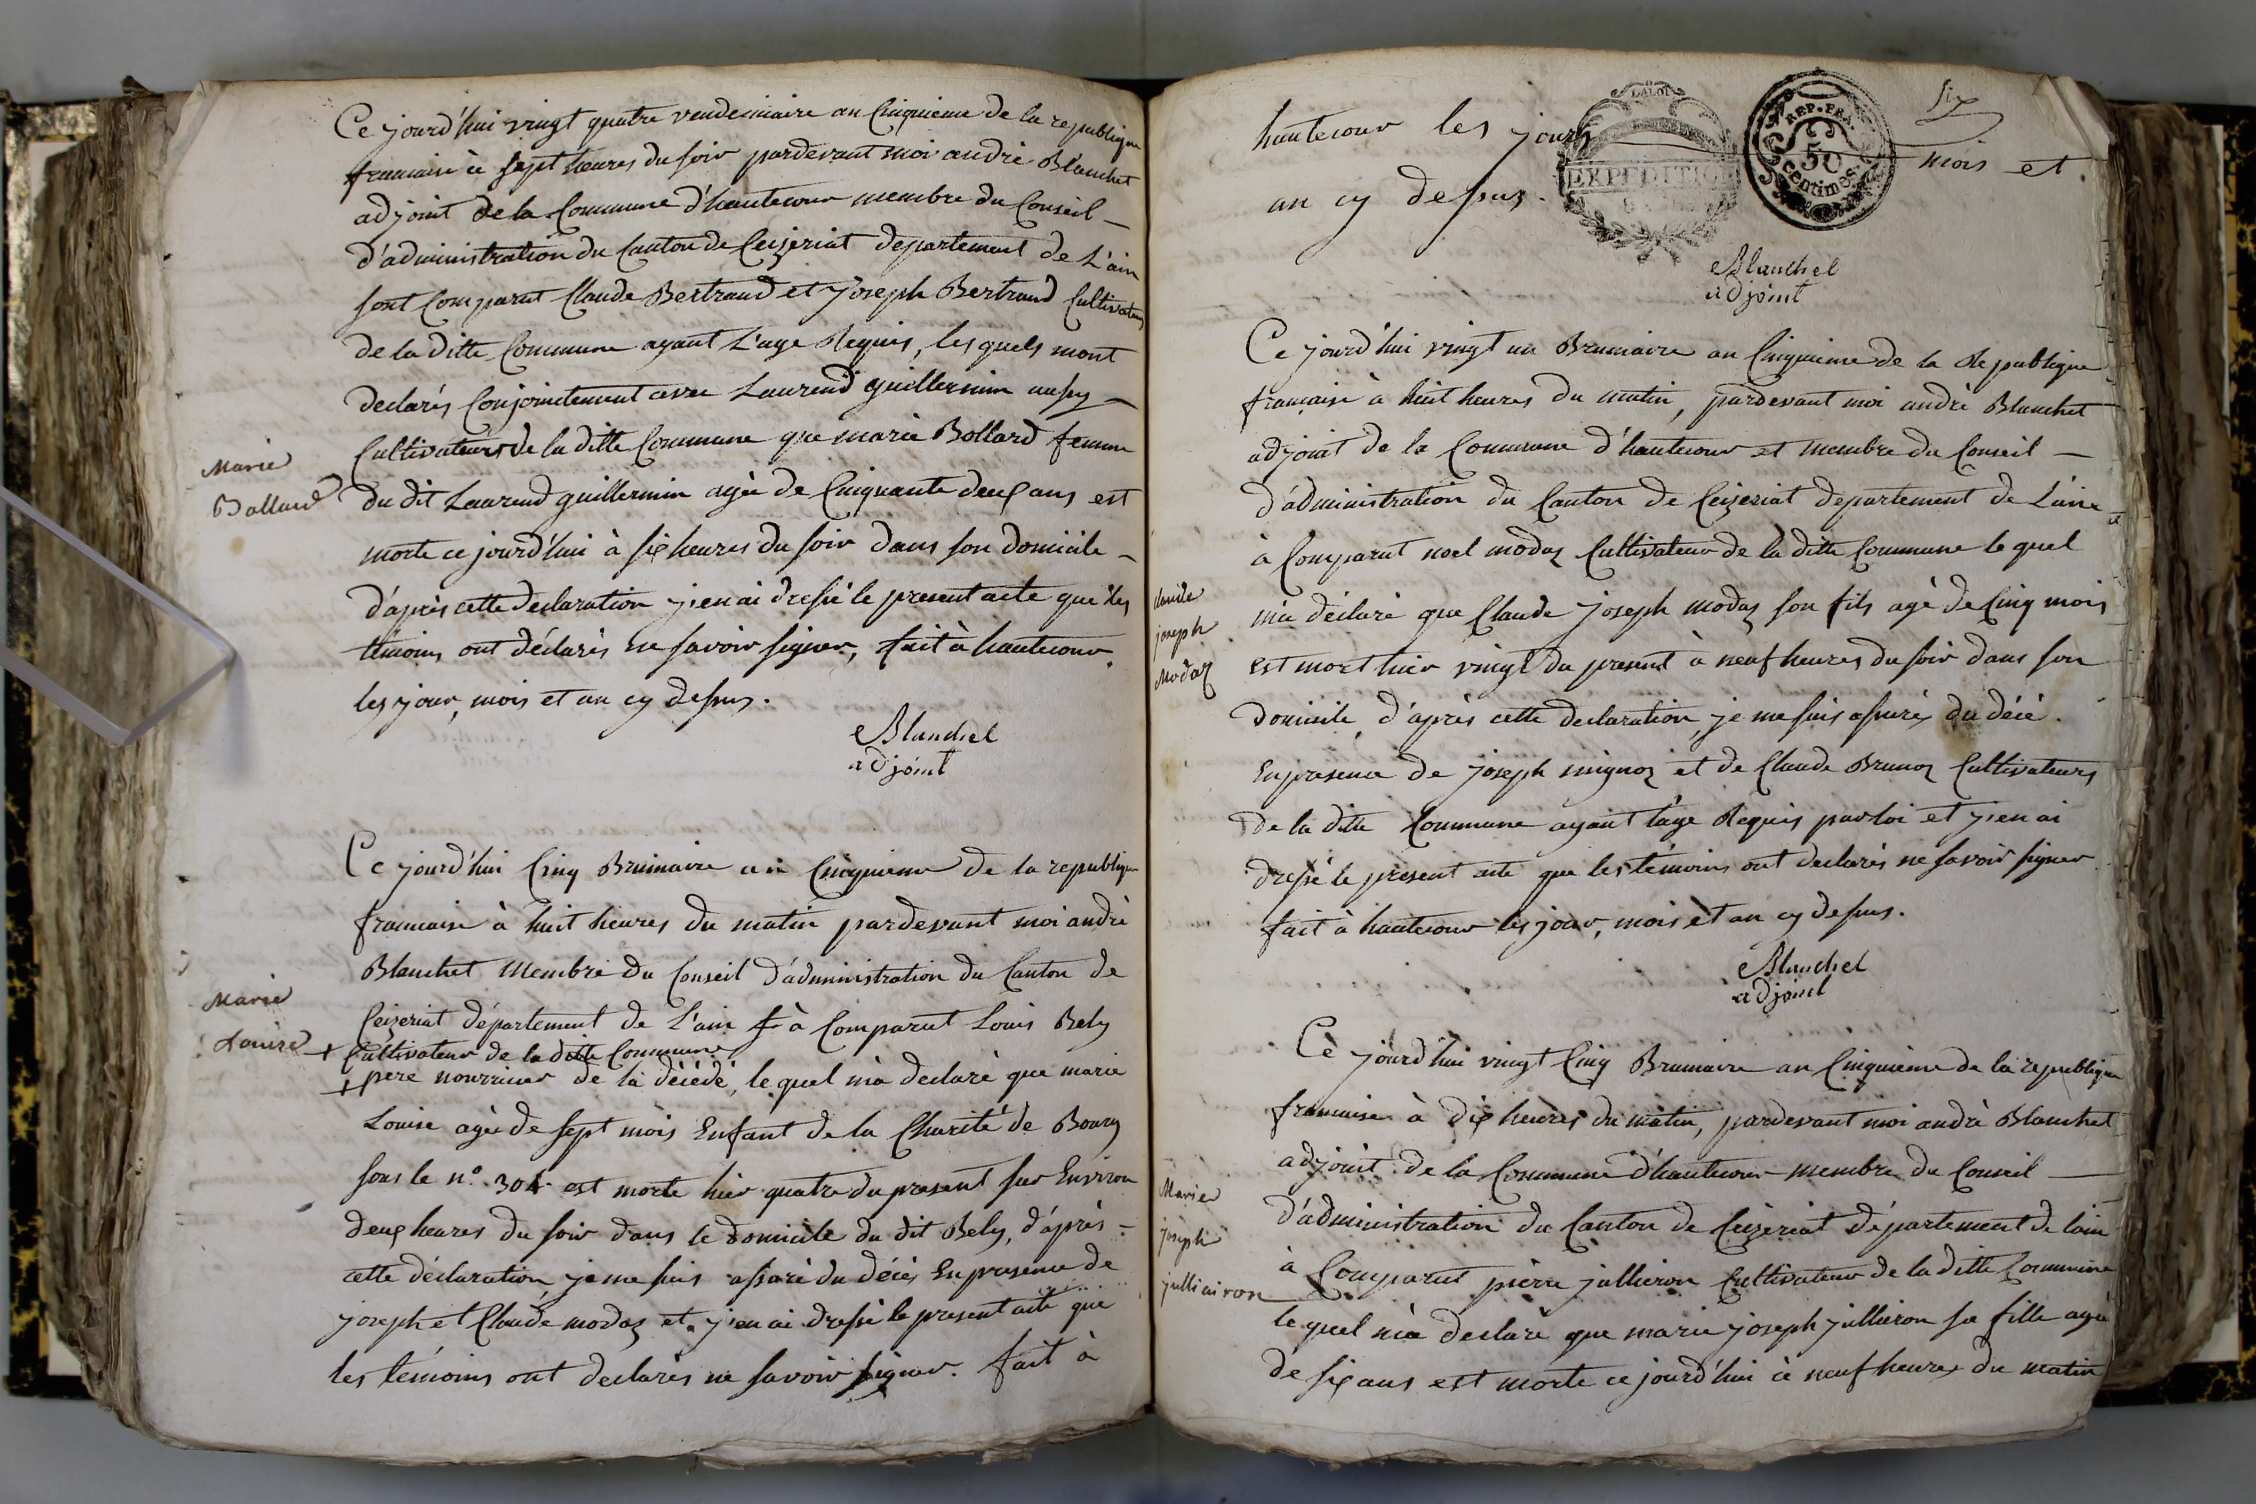 Ce jourd'hui vingt quatre vendemiaire an Cinquieme de la republique
francaise à sept heures du soir pardevant moi andré Blanchet
adjoint de la Commune d'hautecour membre du Conseil
d'administration du Canton de Ceizeriat departement de L'ain
sont Comparut Claude Bertrand et Joseph Bertrand Cultivateurs
de la ditte Commune ayant L'age Requis, les quels mont
declarés Conjointement avec Laurend guillermin aussy
Cultivateurs de la ditte Commune que marie Bollard femme
Marie
Bollard
du dit Laurend guillermin agée de Cinquante deux ans est
morte ce jourd'hui à six heures du soir dans son domicile
d'après cette declaration j'en ai dressé le present acte que les
témoins ont déclarés ne savoir signer, fait à hautecour
les jour, mois et an cy dessus.
Blanchet
adjoint
Ce jourd'hui Cinq Brumaire an Cinquieme de la republique
francaise à huit heures du matin pardevant moi andré
Blanchet membre du Conseil d'administration du Canton de
Marie
Louise
Ceizeriat département de L'ain + à Comparut Louis Bely
+ Cultivateur de la ditte Commune
+ pere nourricier de la décédé, le quel m'a declaré que marie
Louise agée de sept mois Enfant de la Charité de Bourg
sous le n.o 304 est morte hier quatre du present sur Environ
deux heures du soir dans le domicile du dit Bely, d'après
cette déclaration, je me suis assuré du décés En presence de
joseph et Claude modas et j'en ai dressé le present acte que
les témoins ont declarés ne savoir signer. fait à
six
hautecour les jours mois et
an cy dessus.
LALOI
EXPEDITION
REP. FRA.
50
centimes
Blanchet
adjoint
Ce jourd'hui vingt un Brumaire an Cinquieme de la Republique
française à huit heures du matin, pardevant moi andré Blanchet
adjoint de la Commune d'hautecour et membre du Conseil
d'administration du Canton de Ceizeriat departement de L'ain
à Comparut noel modas Cultivateur de la ditte Commune le quel
Claude
joseph
Modas
m'a déclaré que Claude joseph modas son fils agé de Cinq mois
est mort hier vingt du present à neuf heures du soir dans son
domicile, d'après cette declaration, je me suis assurés du décé
En presence de joseph mignoz et de Claude Brunoz Cultivateurs
de la ditte Commune ayant l'age Requis par loi et j'en ai
dressé le present acte que les témoins ont declarés ne savoir signer
fait à hautecour les jour, mois et an cy dessus.
Blanchet
adjoint
Ce jourd'hui vingt Cinq Brumaire an Cinquieme de la republique
francaise à dix heures du matin, pardevant moi andré Blanchet
adjoint de la Commune d'hautecour membre du Conseil
Marie
joseph
jullieiron
d'administration du Canton de Ceizeriat département de lain
à Comparut pierre jullieron Cultivateur de la ditte Commune
le quel m'a declaré que marie joseph jullieron sa fille agée
de six ans est morte ce jourd'hui à neuf heures du matin